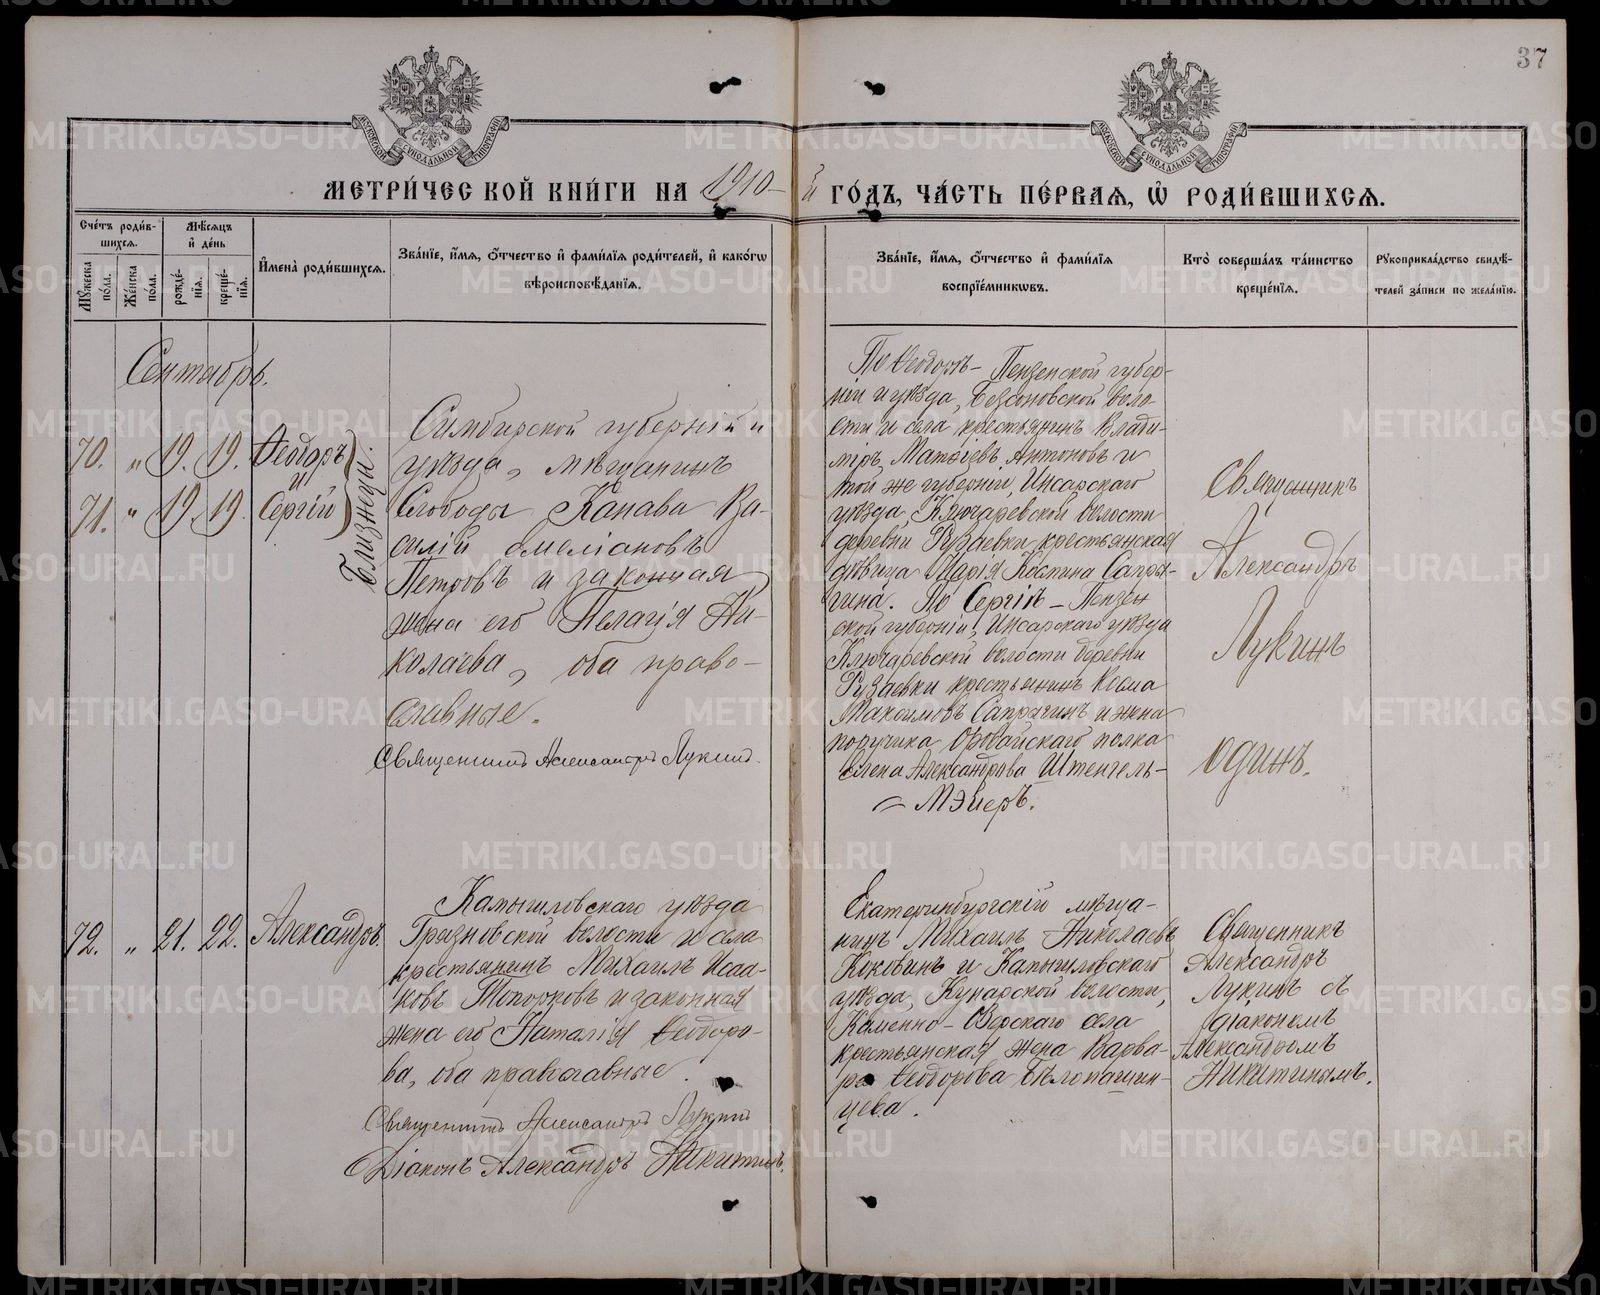 37
МОСКОВСКОЙ СУНОДАЛЬНОЙ ТИПОГРАФІИ
МОСКОВСКОЙ СУНОДАЛЬНОЙ ТИПОГРАФІИ
МЕТРИ́ЧЕСКОЙ КНИ́ГИ НА 1910-й ГО́ДЪ, ЧА́СТЬ ПЕ́РВАЯ, Ѡ РОДИ́ВШИХСЯ.
Сче́тъ роди́в-
шихся.
Мѣ́сяцъ
и де́нь
Му́жеска
по́ла.
Же́нска
по́ла.
рожде́-
нія.
креще́-
нія.
Имена̀ роди́вшихся.
Зва́ніе, и́мя, о́тчество и фами́лія роди́телей, и како́гѡ
вѣроисповѣ́данія.
Зва́ніе, и́мя, о́тчество и фами́лія
воспріе́мникѡвъ.
Кто̀ соверша́лъ та́инство
креще́нія.
Рукоприкла́дство свидѣ́-
телей за́писи по жела́нію.
Сентябрь.
70. „ 19. 19. Ѳеодоръ
и
71. „ 19. 19. Сергій
Близнецы.
Симбирской губерніи и
уѣзда, мѣщанинъ
Слободы Канава Ва-
силій Емеліановъ
Петровъ и законная
жена его Пелагія Ни-
колаева, оба право-
славные.
Священникъ Александръ Лукинъ.
По Ѳеодорѣ – Пензенской губер-
ніи и уѣзда, Бессоновской воло-
сти и села крестьянинъ Влади-
міръ Матѳіевъ Антоновъ и
той же губерніи, Инсарскаго
уѣзда, Ключаревской волости
деревни Рузаевки крестьянская
дѣвица Марія Костина Сапры-
гина. По Сергіѣ – Пензен
ской губерніи, Инсарскаго уѣзда
Ключаревской волости деревни
Рузаевки крестьянинъ Косма
Максимовъ Сапрыгинъ и жена
поручика Оровайскаго полка
Елена Александрова Штенгель-
– Мэйеръ.
Священникъ
Александръ
Лукинъ
одинъ.
72. „ 21. 22. Александръ.
Камышловскаго уѣзда
Грязновской волости и села
крестьянинъ Михаилъ Исаа-
ковъ Топорковъ и законная
жена его Наталія Ѳеодоро-
ва, оба православные.
Священникъ Александръ Лукинъ
Діаконъ Александръ Никитинъ.
Екатеринбургскій мѣща-
нинъ Михаилъ Николаевъ
Коковинъ и Камышловскаго
уѣзда, Кунарской волости,
Каменно-Озерскаго села
крестьянская жена Варва-
ра Ѳеодорова Бѣлопашин-
цева.
Священникъ
Александръ
Лукинъ съ
діакономъ
Александромъ
Никитинымъ.
METRIKI.GASO-URAL.RU